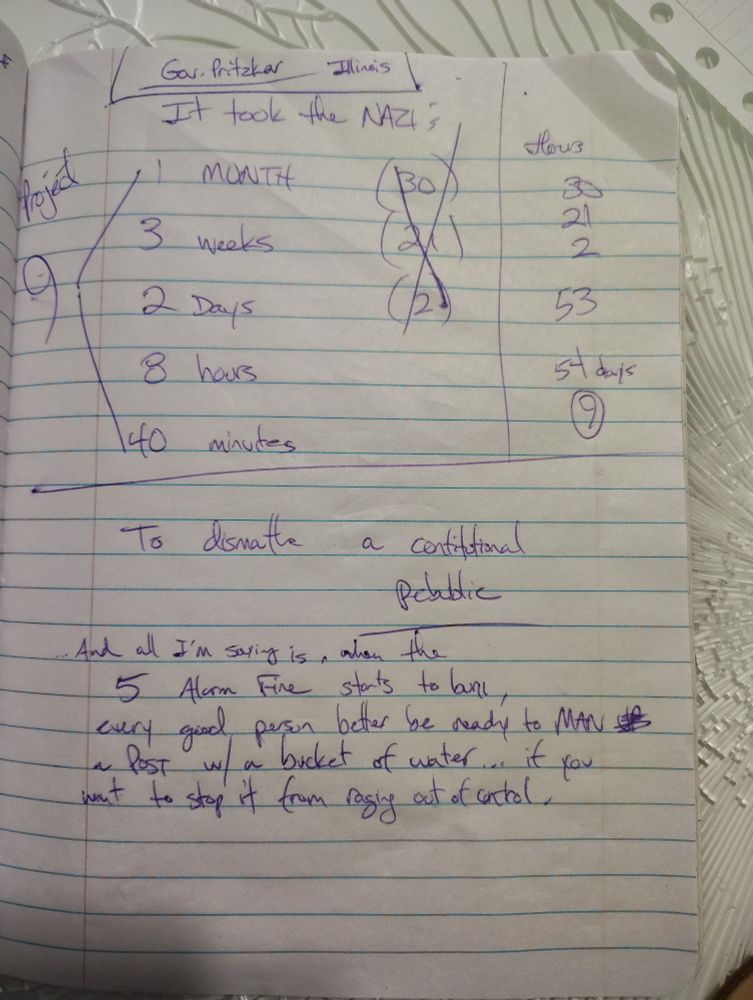 Gov. Pritzkar Illinois
It took the NAZI's
Hours
Project
9
1 MONTH (30) 30
21
3 weeks (21) 2
2 Days (2) 53
8 hours 54 days
9
40 minutes
To dismatle a contitutional
Rebublic
...And all I'm saying is, when the
5 Alarm Fire starts to burn,
every good person better be ready to MAN
a POST w/ a bucket of water... if you
want to stop it from raging out of control.